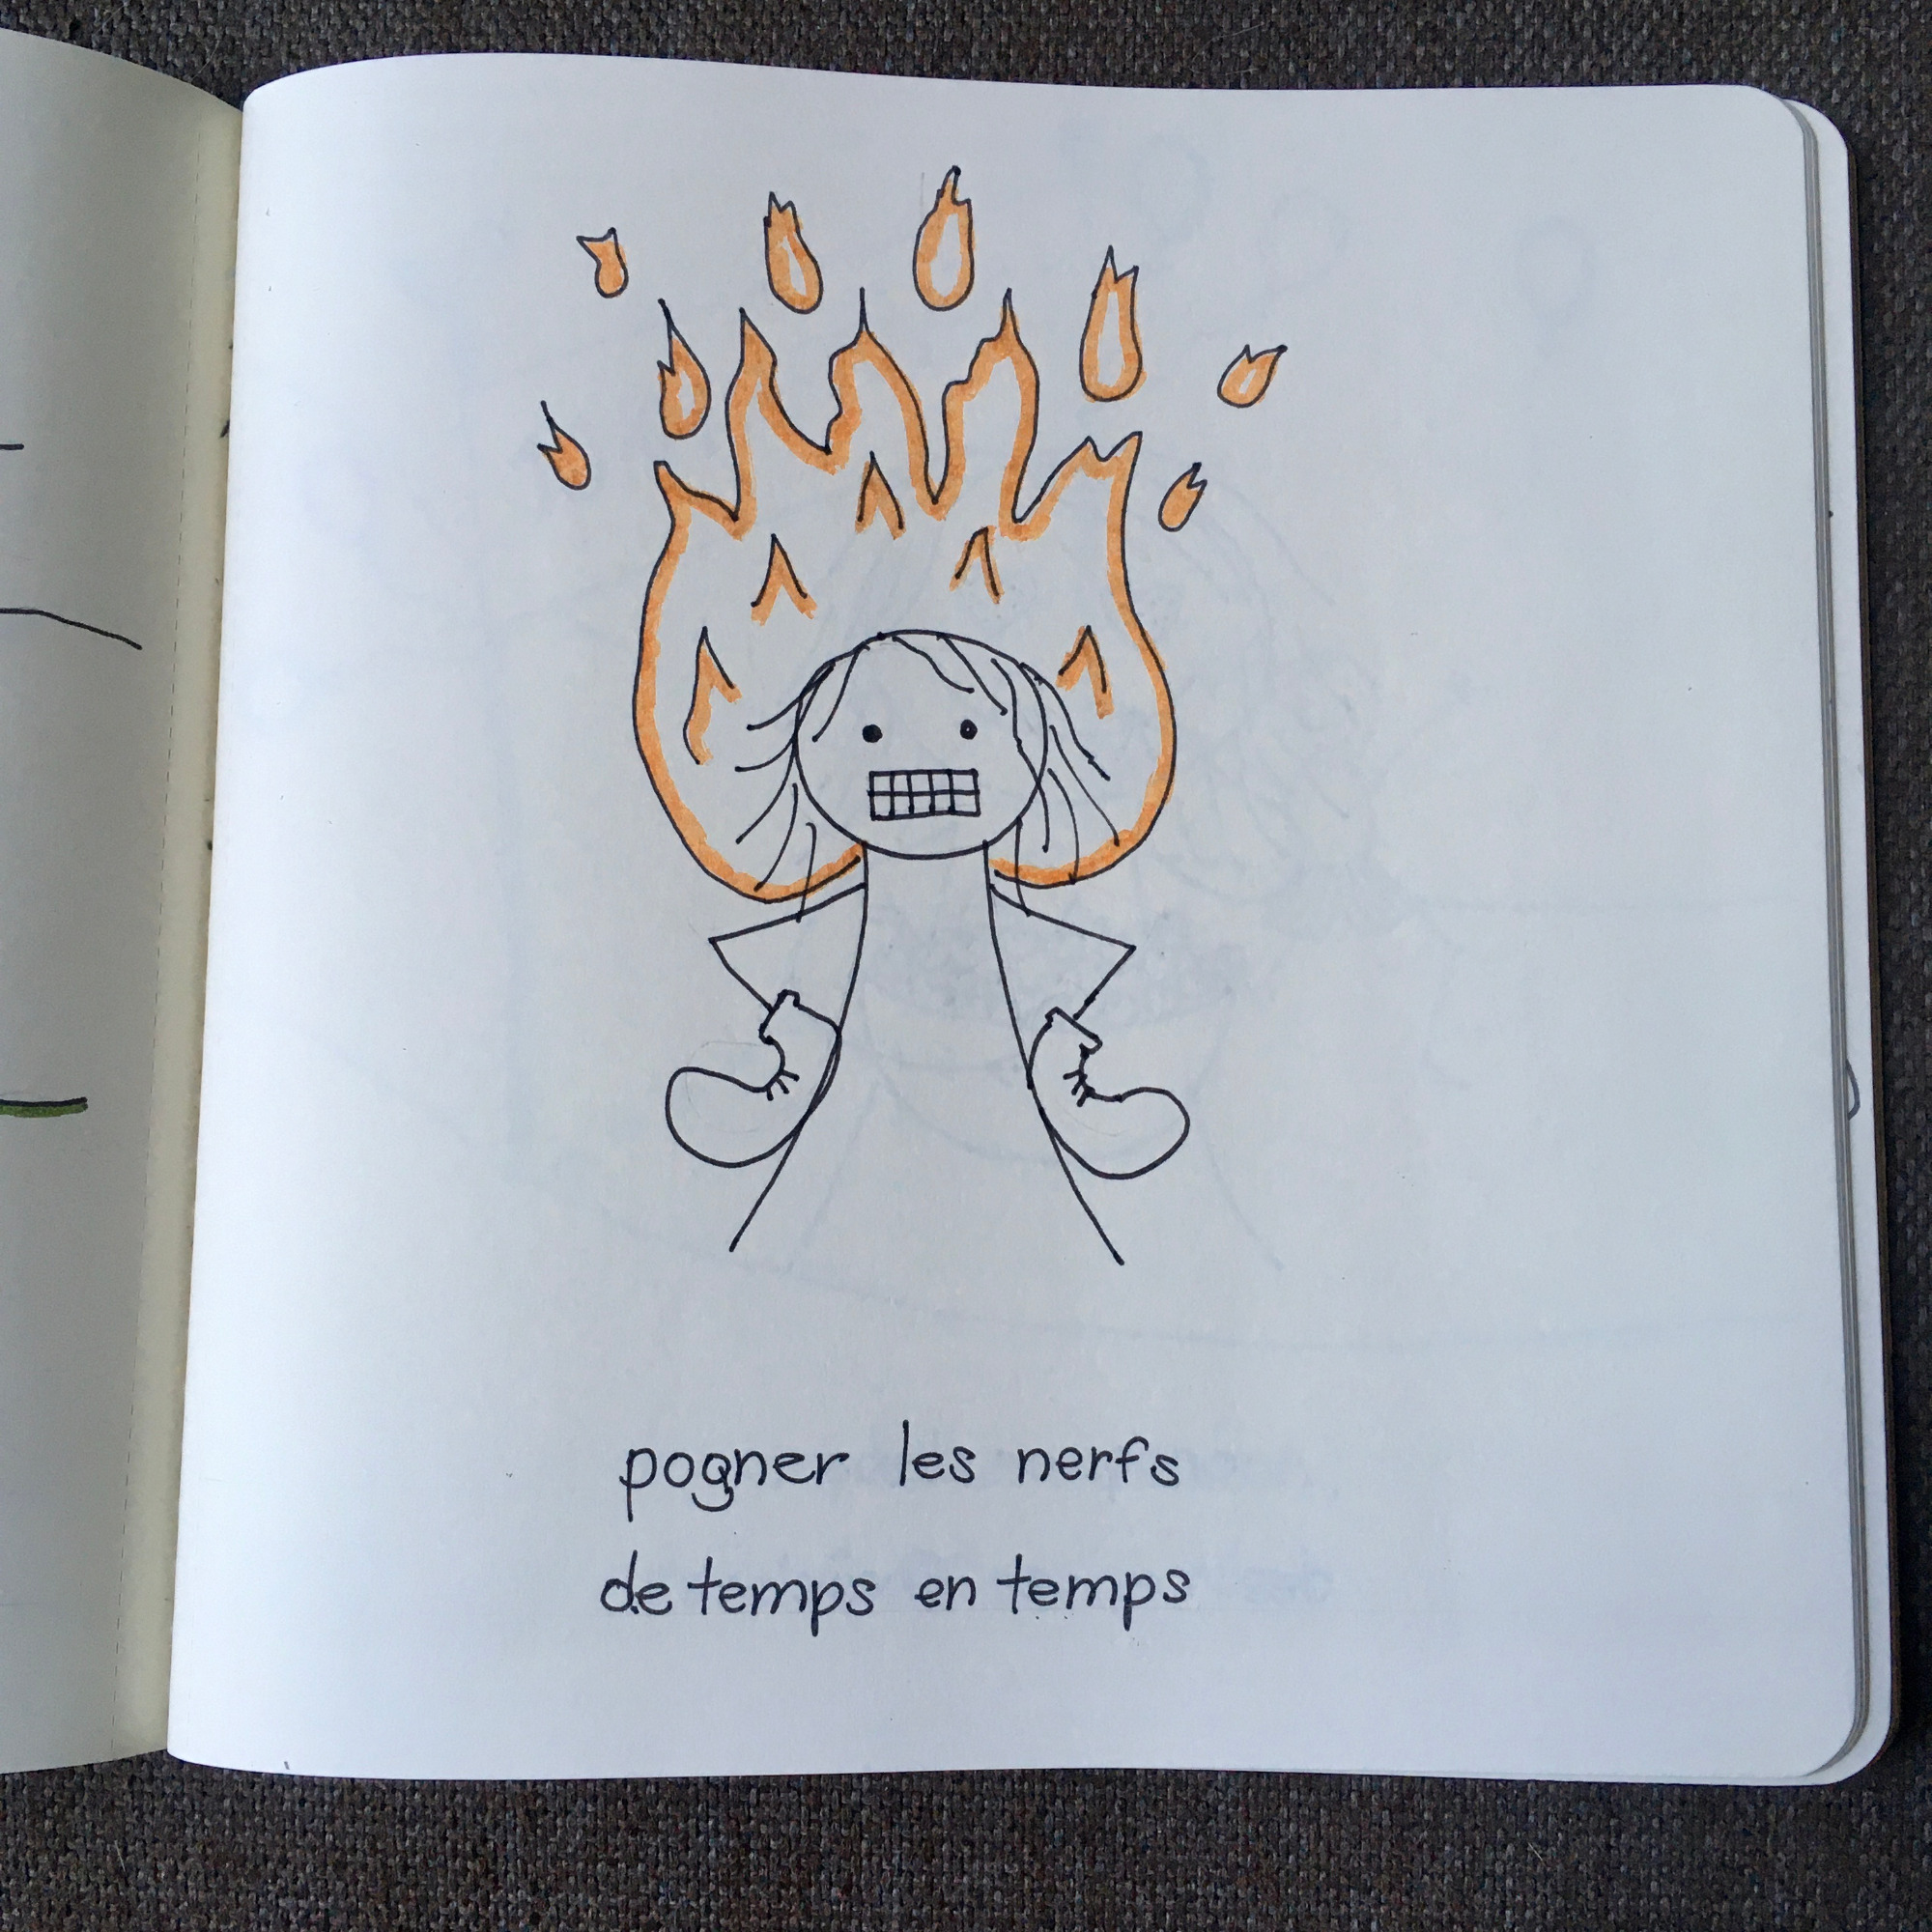 pogner les nerfs
de temps en temps